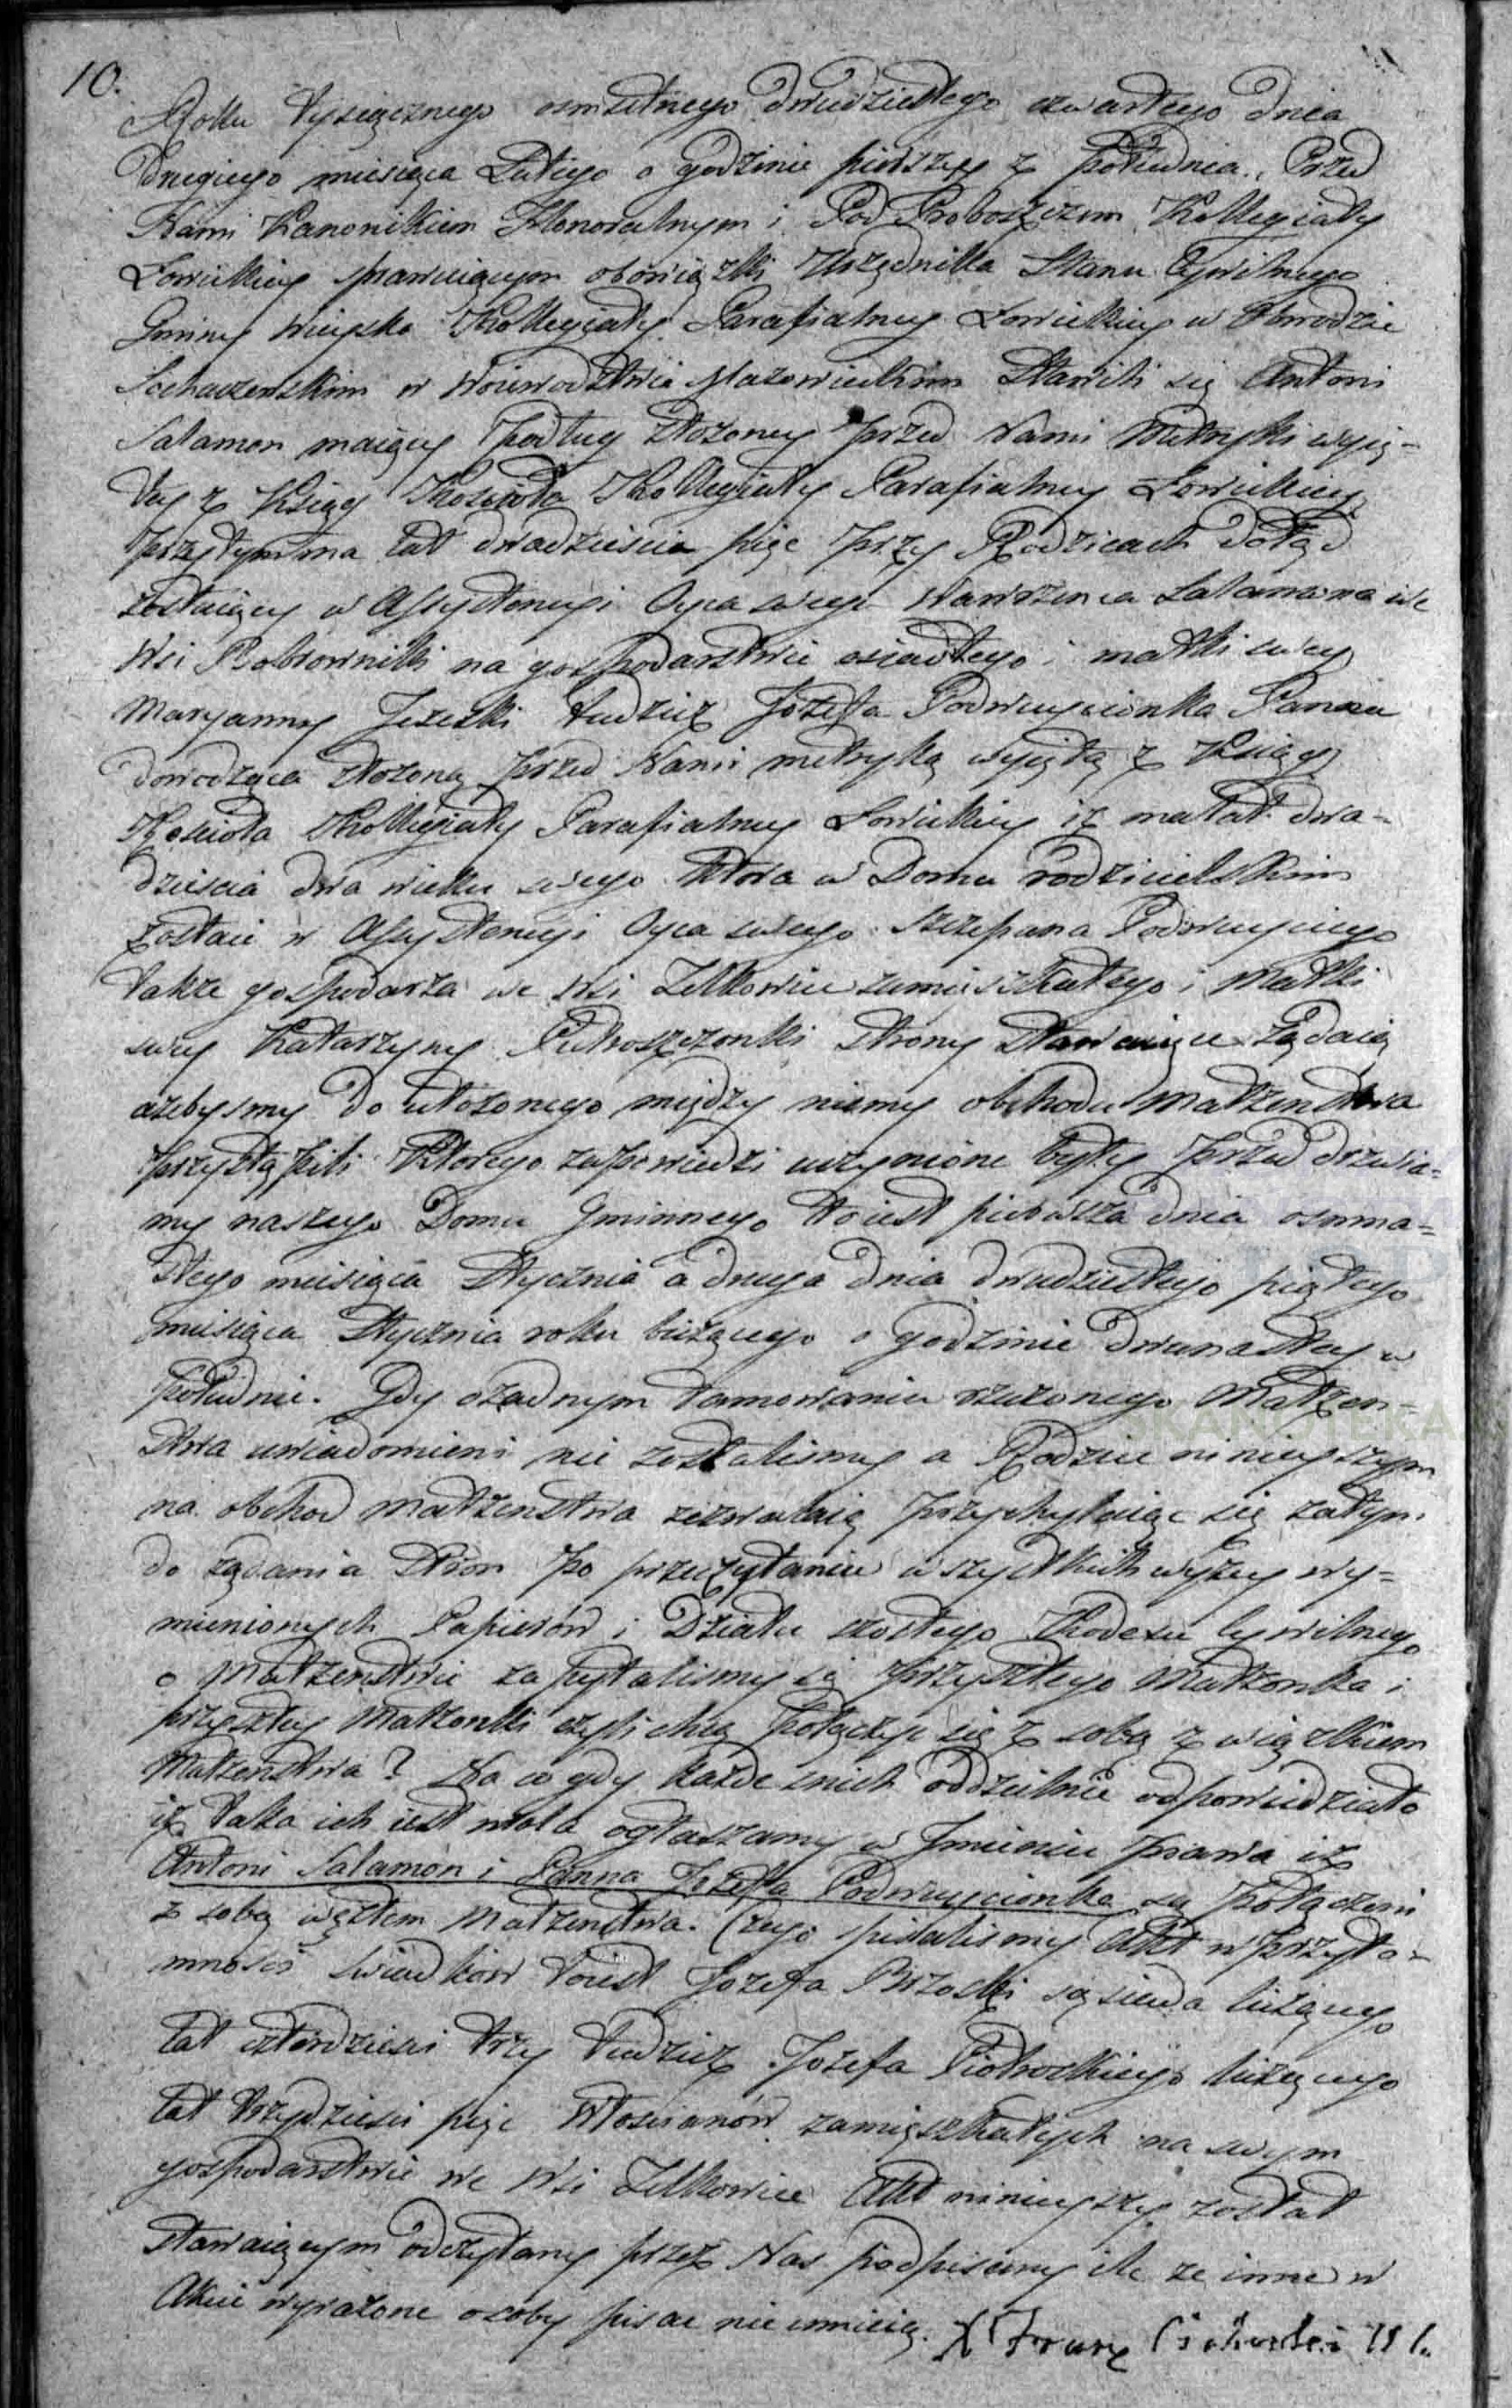 10.
Roku Tysiącznego osmsetnego dwudziestego czwartego dnia
Drugiego miesiąca Lutego o godzinie pierwszey z południa. Przed
Nami Kanonikiem Honoralnym i Pod Proboszczem Kollegiaty
Łowickiey sprawuiącym obowiązki Urzędnika Stanu Cywilnego
Gminy Wieysko Kollegiaty Parafialney Łowickiey w Obwodzie
Sochaczewskim w Woiewodztwie Mazowieckim Stawili się Antoni
Salamon maiący podług złożoney przed Nami Metryki wyię-
tey z Ksiąg Kościoła Kollegiaty Parafialney Łowickiey
przytym ma lat dwadziescia pięc przy Rodzicach dotąd
zostaiący w Assystencyi Oyca swego Wawrzenca Salamona we
Wsi Bobrowniki na gospodarstwie osiadłego i matki swey
Maryanny Jezeski tudzież Józefa Podwuycionka Panna
dowodząca złożoną przed Nami metryką wyiętą z Księgi
Kościoła Kollegiaty Parafialney Łowickiey iż ma lat dwa-
dzieścia dwa wieku swego ktora w Domu rodzicielskim
zostaie w Assystencyi Oyca swego Szczepana Podwuyciego
także gospodarza we Wsi Zelkowice zamieszkałego i Matki
swey Katarzyny Pietroszczonki Strony Stawaiące żądaią
ażebysmy do ułożonego między niemy obchodu Małżenstwa
przystąpili ktorego zapowiedzi uczynione były przed drzwia-
my naszego Domu Gminnego to iest pierwsza dnia osmna-
stego miesiąca Stycznia a druga dnia dwudziestego piątego
miesiąca Stycznia roku bieżącego o godzinie dwunastey w
południe. Gdy o żadnym tamowaniu rzeczonego Małżen-
stwa uwiadomieni nie zostalismy a Rodzice nineyszym
na obchod małżenstwa zezwalaią przychylaiąc się zatym
do żądania Stron po przeczytaniu wszystkich wyżey wy-
mienionych Papierów i Działu szostego Kodexu Cywilnego
o Małżeństwie zapytalismy się przyszłego Małżonka i
przyszłey Małżonki czyli chcą połączyć się z sobą związkiem
Małżenstwa? Na co gdy każde z nich oddzielnie odpowiedziało
iż taka ich iest wola ogłaszamy w Jmieniu prawa iż
Antoni Salamon i Panna Józefa Podwuycionka są połączeni
z sobą węzłem Małżenstwa. Czego spisalismy Akt w przyto-
mności świadków to iest Jozefa Brzoski sąsiada liczącego
lat czterdziesci trzy tudzież Jozefa Piotrowskiego liczącego
lat trzydziesci pięc Włoscianów zamięszkałych na swym
gospodarstwie we Wsi Zelkowice Akt ninieyszy został
Stawaiącym odczytany przez Nas podpisany ile że inne w
Akcie wyrażone osoby pisac nie umieią. X Franc
SKANOTEKA